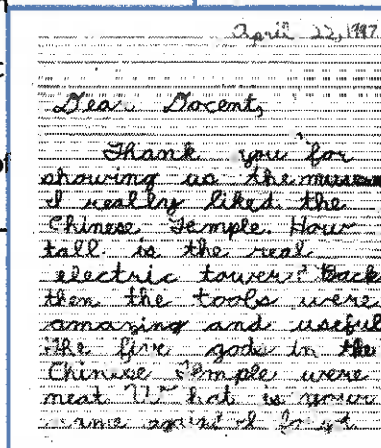 April 22, 1997
Dear Docent,
Thank you for
showing us the museum
I really liked the
Chinese Temple. How
tall is the real
electric tower? Back
then the tools were
amazing and useful
The five gods in the
Chinese Temple were
neat What is your
name again I